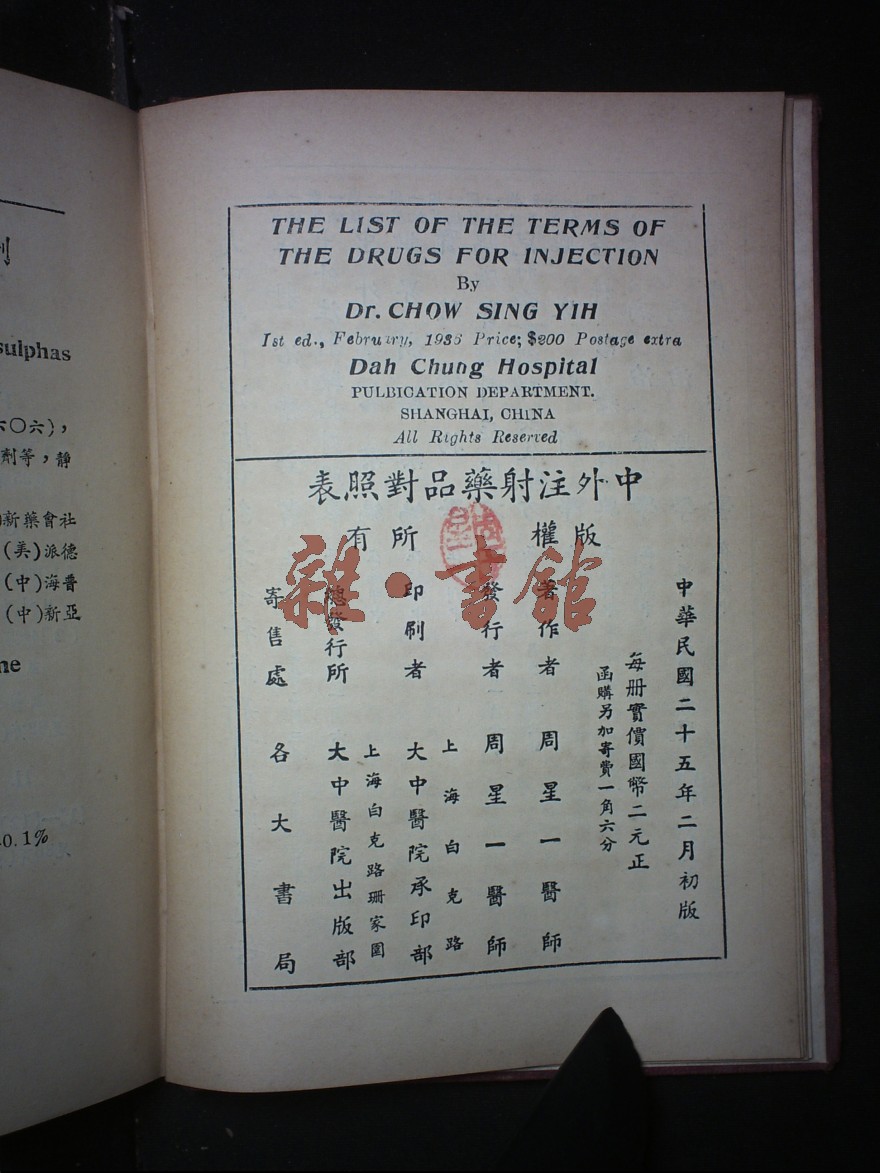 THE LIST OF THE TERMS OF
THE DRUGS FOR INJECTION
By
Dr. CHOW SING YIH
1st ed., February, 1936 Price; $200 Postage extra
Dah Chung Hospital
PULBICATION DEPARTMENT.
SHANGHAI, CHINA
All Rights Reserved
表照對品藥射注外中
有所權版
中華民國二十五年二月初版
每册實價國幣二元正
函購另加寄費一角六分
著作者 周星一醫師
發行者 周星一醫師
上海白克路
印刷者 大中醫院承印部
上海白克路珊家園
總發行所 大中醫院出版部
寄售處 各大書局
雜·書館
sulphas
六〇六),
劑等,靜
新藥會社
(美)派德
(中)海普
(中)新亞
ne
0.1%